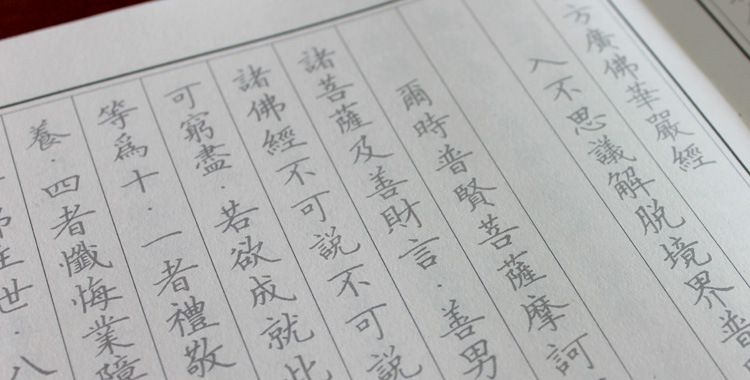 方廣佛華嚴經
入不思議解脫境界普
爾時普賢菩薩摩訶
諸菩薩及善財言．善男
諸佛經不可說不可說
可窮盡．若欲成就此
等為十．一者禮敬
養．四者懺悔業障
世．八